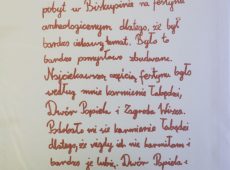 pobyt w Biskupinie na festynie
archeologicznym dlatego, że był
bardzo ciekawy temat. Było to
bardzo pomysłowo zbudowane.
Najciekawszą częścią festynu było
według mnie karmienie łabędzi,
Dwór Popiela i Zagroda Wisza.
Podobało mi się karmienie łabędzi
dlatego, że nigdy ich nie karmiłam i
bardzo je lubię. Dwór Popiela i